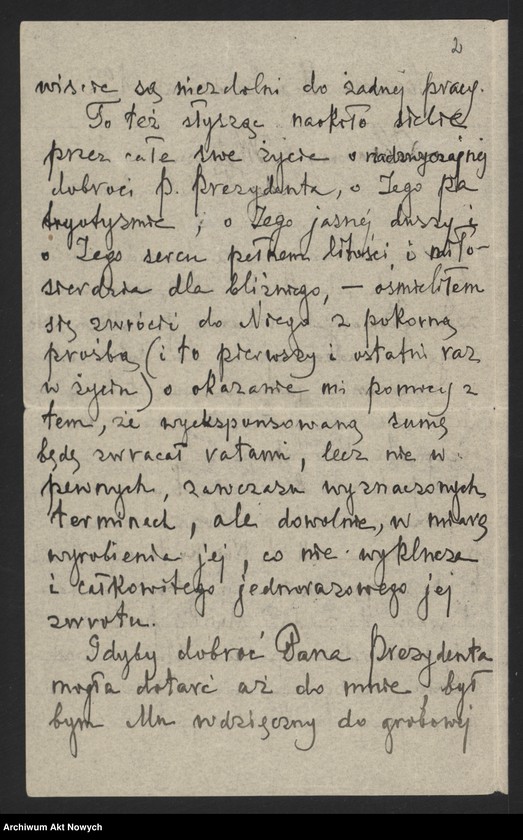 2
wiście są niezdolni do żadnej pracy.
To też słysząc naokoło siebie
przez całe swe życie o nadzwyczajnej
dobroci p. Prezydenta, o Jego pa
tryotyzmie, o Jego jasnéj duszy i
o Jego sercu pełnem litości i miło-
sierdzia dla bliźniego, — ośmieliłem
się zwrócić do Niego z pokorną
prośbą (i to pierwszy i ostatni raz
w życiu) o okazanie mi pomocy z
tem, że wyekspensowaną sumę
będę zwracał ratami, lecz nie w
pewnych, zawczasu wyznaczonych
terminach, ale dowolnie, w miarę
wyrobienia jej, co nie wyklucza
i całkowitego jednorazowego jej
zwrotu.
Gdyby dobroć Pana Prezydenta
mogła dotarć aż do mnie był
bym Mu wdzięczny do grobowej
Archiwum Akt Nowych